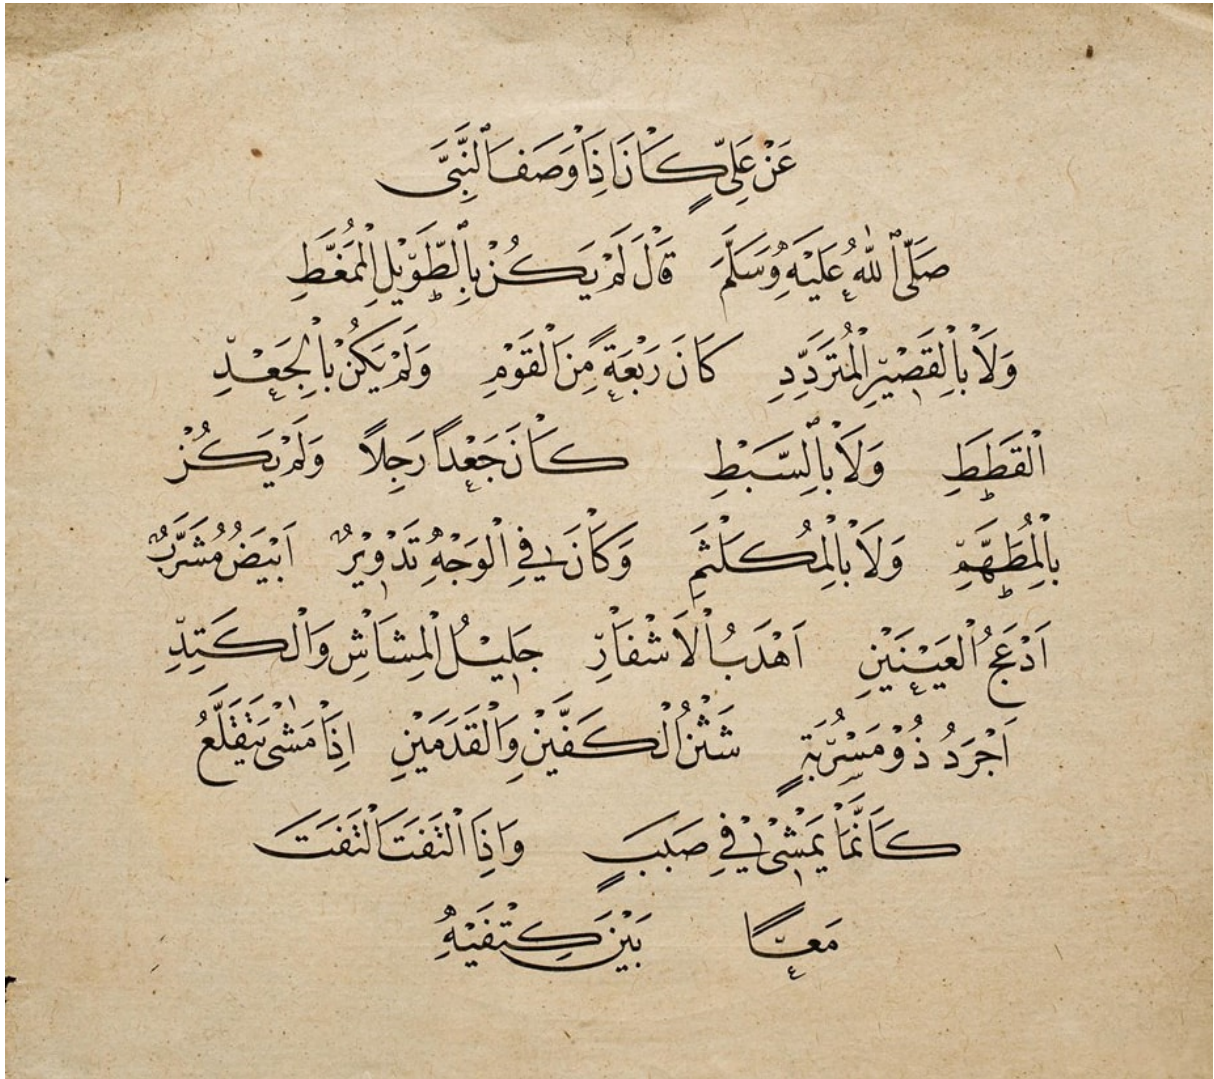 عَنْ عَلِيٍّ كَانَ إِذَا وَصَفَ النَّبِيَّ
صَلَّى اللّٰهُ عَلَيْهِ وَسَلَّمَ قَالَ لَمْ يَكُنْ بِالطَّوِيْلِ الْمُمَغَّطِ
وَلَا بِالْقَصِيْرِ الْمُتَرَدِّدِ كَانَ رَبْعَةً مِنَ الْقَوْمِ وَلَمْ يَكُنْ بِالْجَعْدِ
الْقَطَطِ وَلَا بِالسَّبْطِ كَانَ جَعْدًا رَجِلًا وَلَمْ يَكُنْ
بِالْمُطَهَّمِ وَلَا بِالْمُكَلْثَمِ وَكَانَ فِي الْوَجْهِ تَدْوِيْرٌ اَبْيَضُ مُشْرَبٌ
اَدْعَجُ الْعَيْنَيْنِ اَهْدَبُ الْاَشْفَارِ جَلِيْلُ الْمُشَاشِ وَالْكَتَدِ
اَجْرَدُ ذُوْ مَسْرُبَةٍ شَثْنُ الْكَفَّيْنِ وَالْقَدَمَيْنِ اِذَا مَشٰى يَتَقَلَّعُ
كَاَنَّمَا يَمْشِيْ فِي صَبَبٍ وَاِذَا الْتَفَتَ الْتَفَتَ
مَعًا بَيْنَ كِتْفَيْهِ